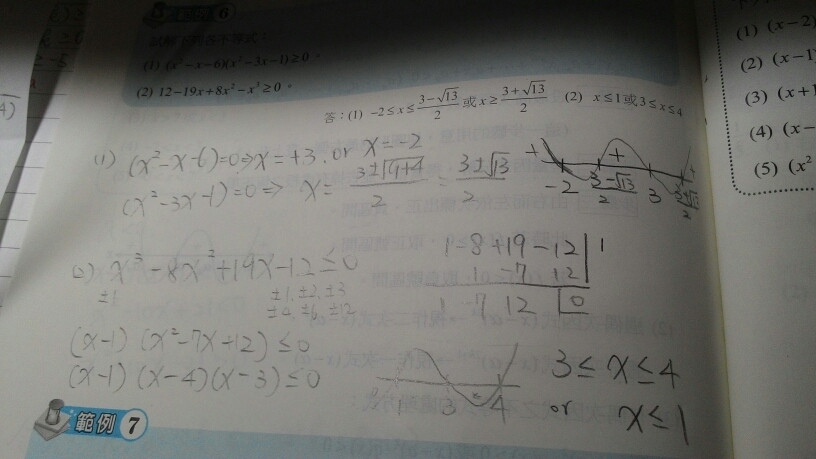 6
試解下列各不等式：
(1) (x²−x−6)(x²−3x−1)≥0。
(2) 12−19x+8x²−x³≥0。
答：(1) −2≤x≤(3−√13)/2 或 x≥(3+√13)/2 (2) x≤1或3≤x≤4
(1) (x²-x-6)=0⇒x=+3. or x=-2
(x²-3x-1)=0⇒ x= (3±√(9+4))/2 = (3±√13)/2
+ + +
-2 (3-√13)/2 3
(2) x³-8x²+19x-12≤0
±1 ±1, ±2, ±3
±4, ±6, ±12
1 -8 +19 -12 | 1
1 -7 12
1 7 12 | 0
(x-1)(x²-7x+12)≤0
(x-1)(x-4)(x-3)≤0
1 3 4
3≤x≤4
or x≤1
範例 7
(1) (x−2)
(2) (x−1
(3) (x+1
(4) (x−
(5) (x²